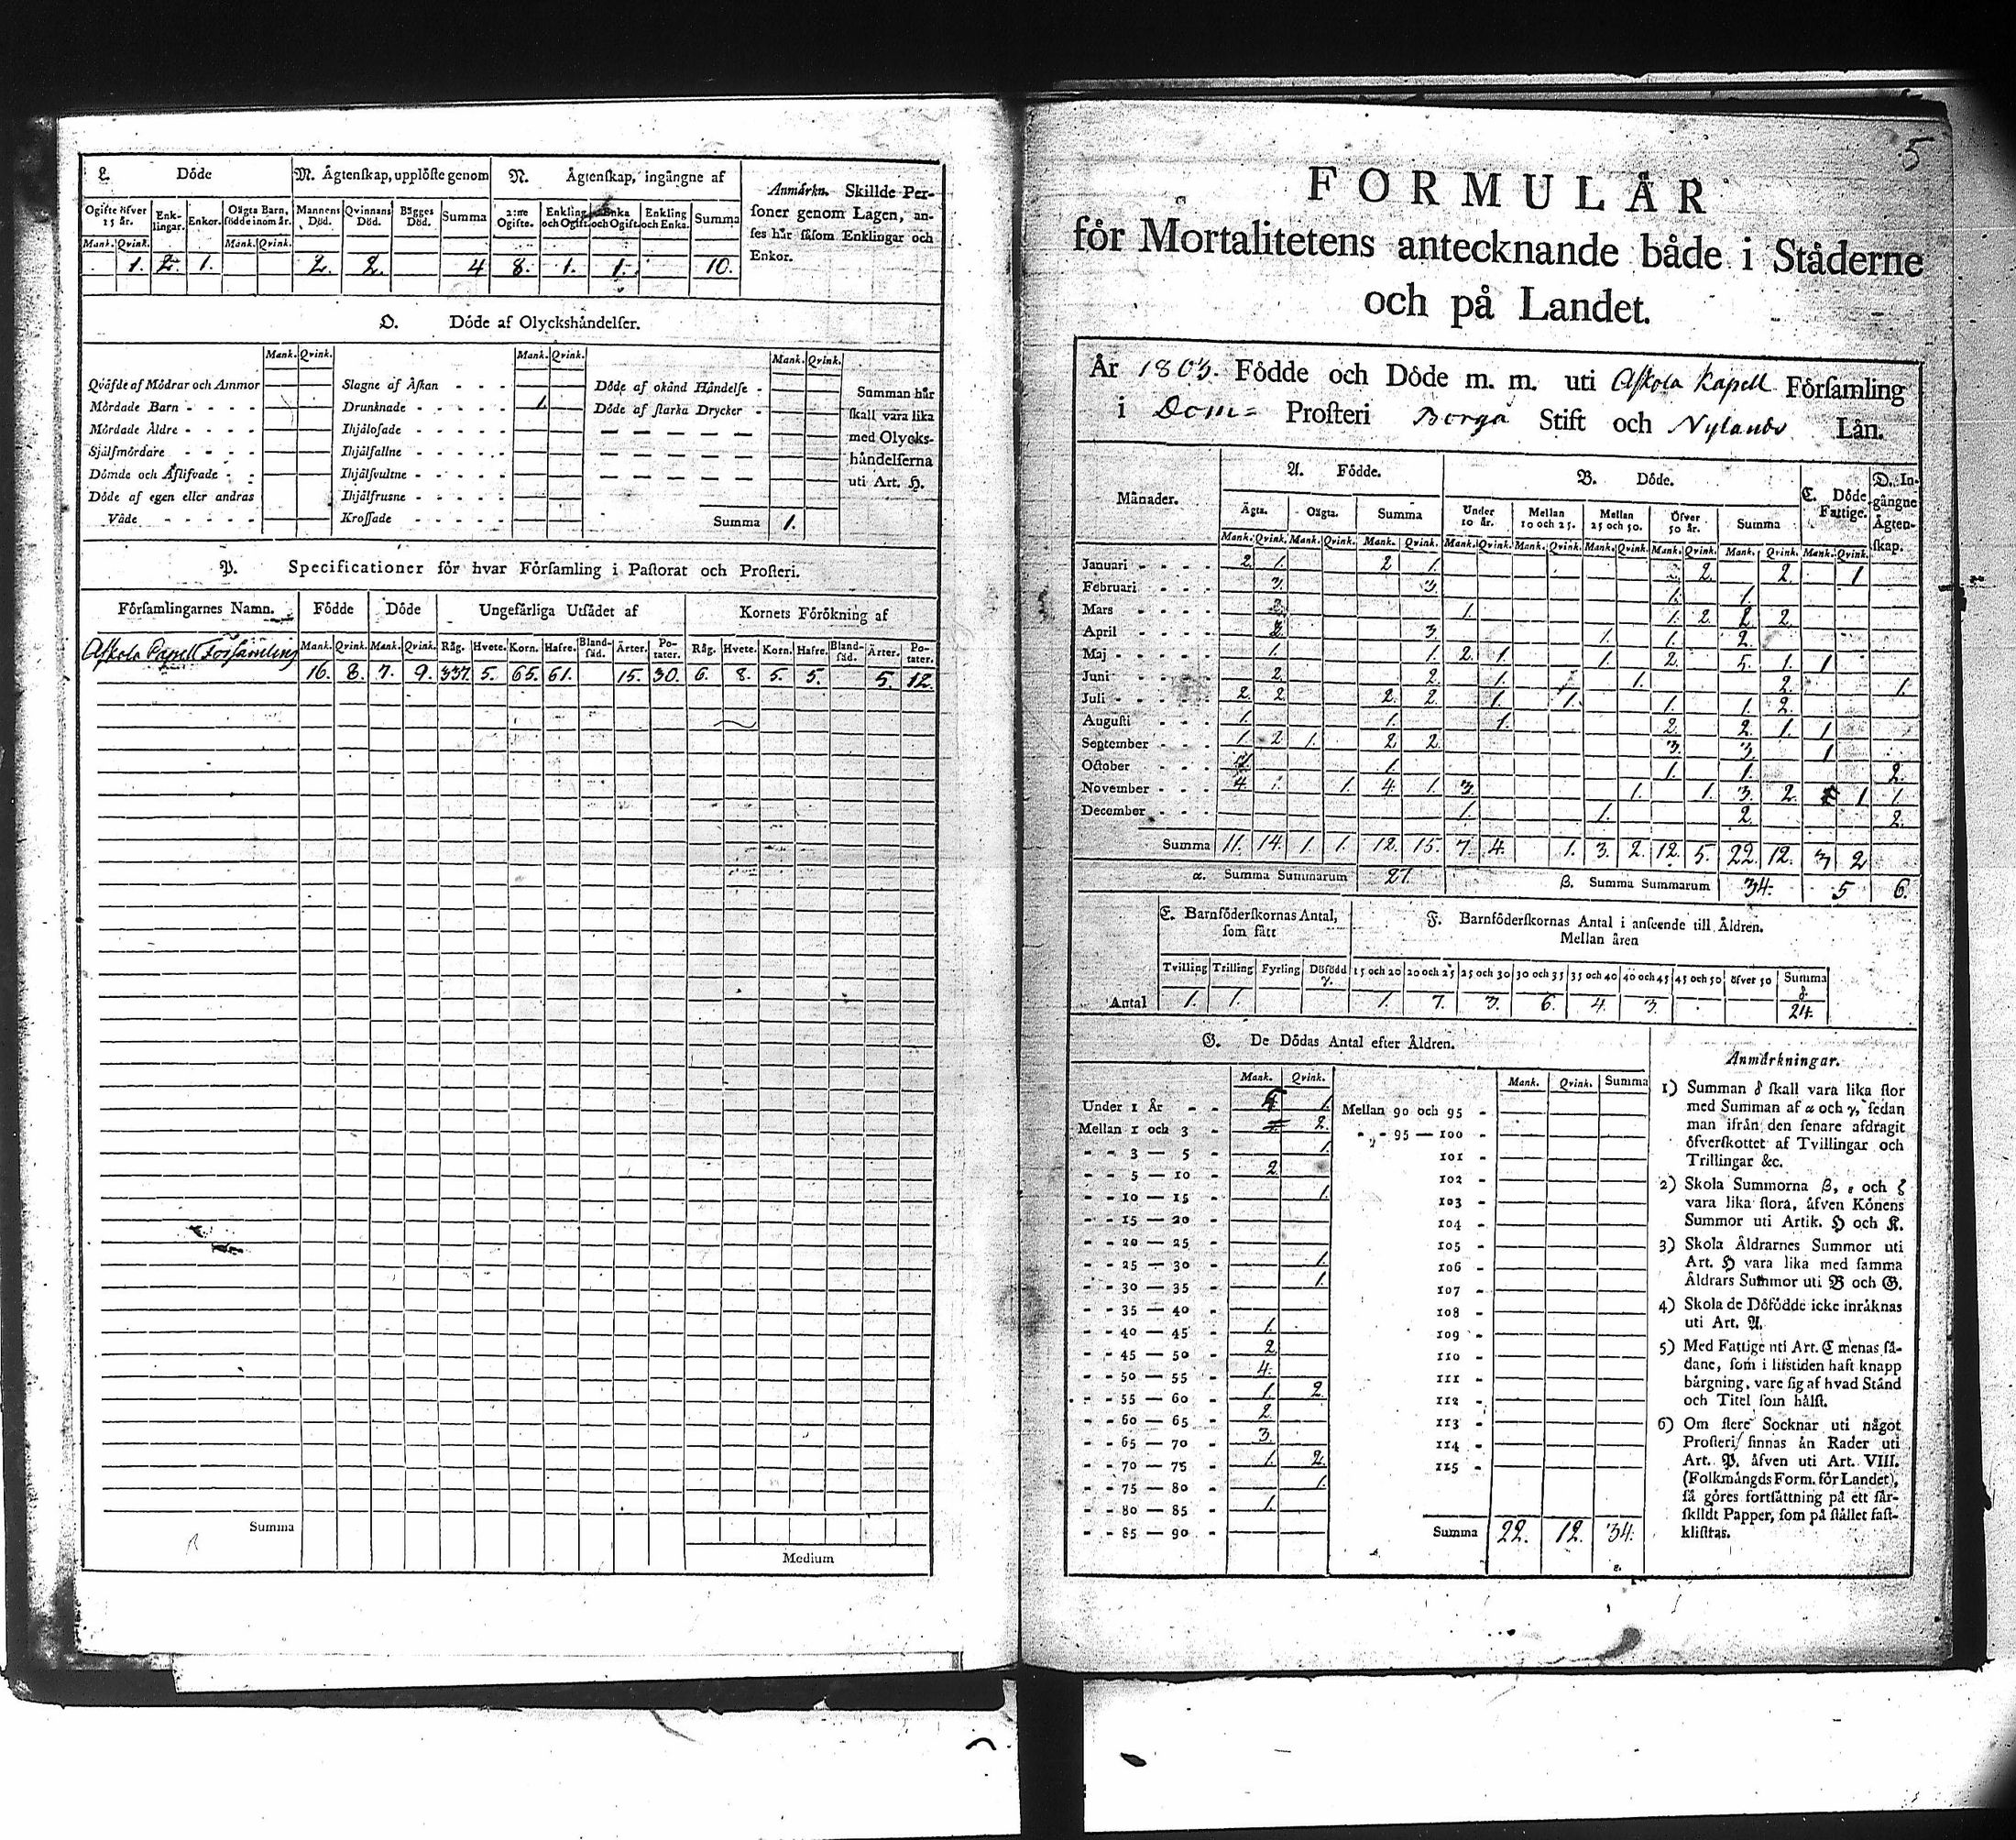 L. Döde
M. Ägtenskap, upplöste genom
N. Ägtenskap, ingångne af
Anmärkn. Skillde Per-
soner genom Lagen, an-
ses här såsom Enklingar och
Enkor.
Ogifte öfver 15 år. Enk-lingar. Enkor. Oägta Barn, födde inom år. Mannens Död. Qvinnans Död. Bägges Död. Summa 2:ne Ogifte. Enkling och Ogift. Enka och Ogift. Enkling och Enka. Summa
Mank. Qvink. Mank. Qvink.
1. 2. 1. 2. 2. 4 8. 1. 1. 10.
O. Döde af Olyckshändelser.
Mank. Qvink. Mank. Qvink. Mank. Qvink.
Qväfde af Mödrar och Ammor
Mördade Barn
Mördade Äldre
Självmördare
Dömde och Aflifvade
Döde af egen eller andras
Våde
Slagne af Åskan
Drunknade 1.
Ihjälosade
Ihjälfallne
Ihjälsvultne
Ihjälfrusne
Krossade
Döde af okänd Händelse
Döde af starka Drycker
Summa 1.
Summan här
skall vara lika
med Olycks-
händelserna
uti Art. H.
P. Specificationer för hvar Församling i Pastorat och Prosteri.
Församlingarnes Namn. Födde Döde Ungefärliga Utsädet af Kornets Förökning af
Mank. Qvink. Mank. Qvink. Råg. Hvete. Korn. Hafre. Bland-säd. Ärter. Po-tater. Råg. Hvete. Korn. Hafre. Bland-säd. Ärter. Po-tater.
Askola Capell Församling
16. 8. 7. 9. 337. 5. 65. 61. 15. 30. 6. 8. 5. 5. 5. 12.
Summa
Medium
5
FORMULÄR
för Mortalitetens antecknande både i Städerne
och på Landet.
År 1803. Födde och Döde m. m. uti Askola Kapell Församling
i Dom= Prosteri Borgå Stift och Nylands Län.
Månader. A. Födde. B. Döde. C. Döde Fattige. D. In-gångne Ägten-skap.
Ägta. Oägta. Summa Under 10 år. Mellan 10 och 25. Mellan 25 och 50. Öfver 50 år. Summa
Mank. Qvink. Mank. Qvink. Mank. Qvink. Mank. Qvink. Mank. Qvink. Mank. Qvink. Mank. Qvink. Mank. Qvink. Mank. Qvink.
Januari 2. 1. 2 1. 2. 2. 1
Februari 3. 3. 1. 1.
Mars 1. 1. 2. 2. 2.
April 3 1. 1. 2.
Maj 1. 1. 2. 1. 1. 2. 5. 1. 1
Juni 2. 2. 1. 1. 2. 1.
Juli 2. 2. 2. 2. 1. 1. 1. 1. 2.
Augusti 1. 1. 1. 2. 2. 1. 1
September 1. 2. 1. 2. 2. 3. 3. 1
October 1. 1. 1. 2.
November 4. 1. 4. 1. 3. 1. 1. 3. 2. 1 1
December 1. 1. 2. 2.
Summa 11. 14. 1. 1. 12. 15. 7. 4. 1. 3. 2. 12. 5. 22. 12. 3 2
α. Summa Summarum 27. β. Summa Summarum 34. 5 6.
E. Barnföderskornas Antal,
som fått
F. Barnföderskornas Antal i anseende till Åldren.
Mellan åren
Tvilling Trilling Fyrling Dödfödd γ. 15 och 20 20 och 25 25 och 30 30 och 35 35 och 40 40 och 45 45 och 50 öfver 50 Summa δ
Antal 1. 1. 1. 7. 3. 6. 4. 3. 24.
G. De Dödas Antal efter Åldren.
Mank. Qvink. Mank. Qvink. Summa
Under 1 År 1.
Mellan 1 och 3 2.
3 — 5 1.
5 — 10 2
10 — 15 1.
15 — 20
20 — 25
25 — 30 1.
30 — 35 1.
35 — 40
40 — 45 1.
45 — 50 2
50 — 55 4.
55 — 60 1. 2.
60 — 65 2.
65 — 70 3.
70 — 75 1. 2.
75 — 80 1.
80 — 85 1.
85 — 90
Mellan 90 och 95
95 — 100
101
102
103
104
105
106
107
108
109
110
111
112
113
114
115
Summa 22. 12. 34.
ε.
Anmärkningar.
1) Summan δ skall vara lika stor
med Summan af α och γ, sedan
man ifrån den senare afdragit
öfverskottet af Tvillingar och
Trillingar &c.
2) Skola Summorna β, ε och ζ
vara lika stora, äfven Könens
Summor uti Artik. H och K.
3) Skola Åldrarnes Summor uti
Art. H vara lika med samma
Åldrars Summor uti B och G.
4) Skola de Dödfödde icke inräknas
uti Art. A.
5) Med Fattige uti Art. C menas så-
dane, som i lifstiden haft knapp
bärgning, vare sig af hvad Stånd
och Titel som hälst.
6) Om flere Socknar uti något
Prosteri finnas än Rader uti
Art. P, äfven uti Art. VIII.
(Folkmängds Form. för Landet),
så göres fortsättning på ett sär-
skildt Papper, som på stället fast-
klistras.